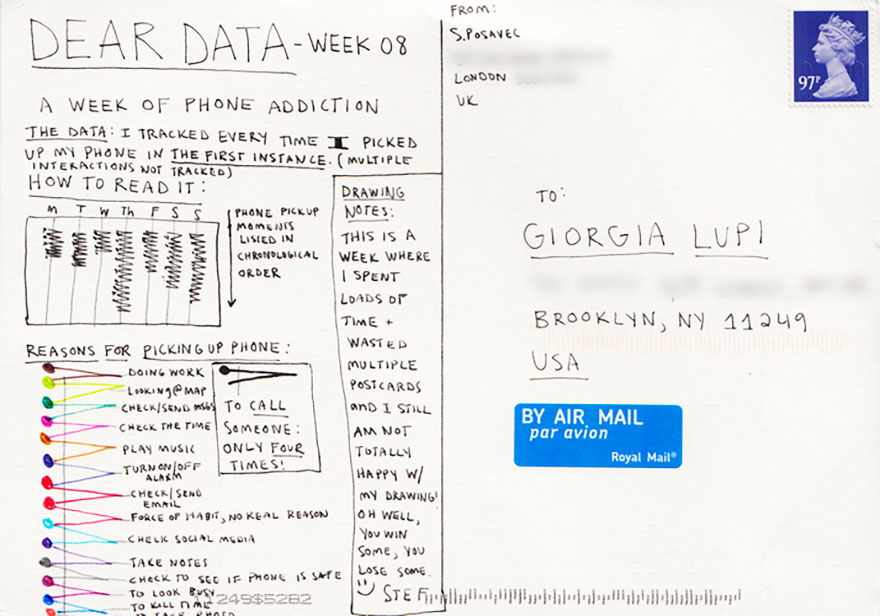 DEAR DATA - WEEK 08
A WEEK OF PHONE ADDICTION
THE DATA: I TRACKED EVERY TIME I PICKED
UP MY PHONE IN THE FIRST INSTANCE. (MULTIPLE
INTERACTIONS NOT TRACKED)
HOW TO READ IT:
M T W Th F S S
PHONE PICKUP
MOMENTS
LISTED IN
CHRONOLOGICAL
ORDER
REASONS FOR PICKING UP PHONE:
DOING WORK
LOOKING @ MAP
CHECK/SEND MSGS
CHECK THE TIME
PLAY MUSIC
TURN ON/OFF
ALARM
CHECK/SEND
EMAIL
FORCE OF HABIT, NO REAL REASON
CHECK SOCIAL MEDIA
TAKE NOTES
CHECK TO SEE IF PHONE IS SAFE
TO LOOK BUSY
TO KILL TIME
TO TAKE PHOTO
TO CALL
SOMEONE:
ONLY FOUR
TIMES!
DRAWING
NOTES:
THIS IS A
WEEK WHERE
I SPENT
LOADS OF
TIME +
WASTED
MULTIPLE
POSTCARDS
and I STILL
AM NOT
TOTALLY
HAPPY W/
MY DRAWING!
OH WELL,
YOU WIN
SOME, YOU
LOSE SOME.
STEF
FROM:
S. POSAVEC
LONDON
UK
97P
TO:
GIORGIA LUPI
BROOKLYN, NY 11249
USA
BY AIR MAIL
par avion
Royal Mail®